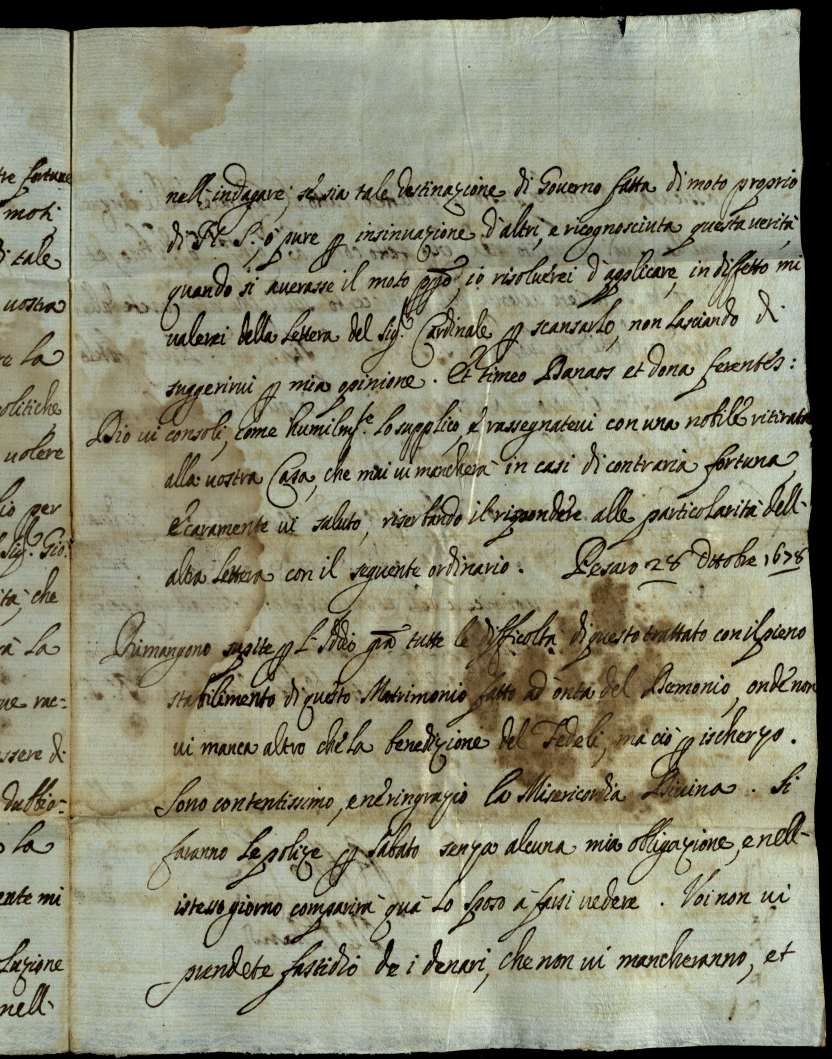 tre fortune
moti,
di tale
vostra
re la
olitiche
volere
lio per
Sig.r Gio:
ità, che
rà la
que rac=
essere di
dubbio=
o la
ente mi
luzione
nell-
nell'indagare, se sia tale destinazione di Governo fatta di moto proprio
di N. S., ò pure p insinuazione d'altri, e ricognosciuta questa verità,
quando si averasse il moto ppo, io risolverei d'applicare, in diffetto mi
valerei della lettera del Sig.r Cardinale p scansarlo, non lasciando di
suggerirvi p mia opinione. Et timeo Danaos et dona ferentes:
Dio vi consoli, come humilmte. lo supplico, e rassegnatevi con una nobile ritirata
alla vostra Casa, che mai vi mancherà in casi di contraria fortuna,
e caramente vi saluto, riserbando il rispondere alle particolarità dell-
altra lettera con il seguente ordinario. Pesaro 28 Ottobre 1678
Rimangono supite p l'Iddio gra tutte le difficoltà di questo trattato con il pieno
stabilimento di questo Matrimonio fatto ad onta del Demonio, onde non
vi manca altro che la benedizione del Fedeli, ma ciò p ischerzo.
Sono contentissimo, e ne ringrazio la Misericordia Divina. Si
faranno le polize p Sabato senza alcuna mia obligazione, e nell-
istesso giorno comparirà quà lo Sposo à farsi vedere. Voi non vi
prendete fastidio de i denari, che non vi mancheranno, et